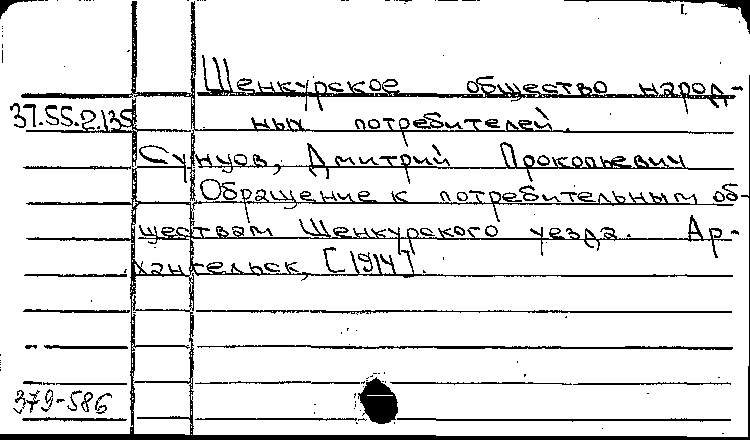 Шенкурское общество народ-
37.55.2.135 ных потребителей.
Сунцов, Дмитрий Прокопьевич
Обращение к потребительным об-
ществам Шенкурского уезда. Ар-
хангельск, [1914].
379-586